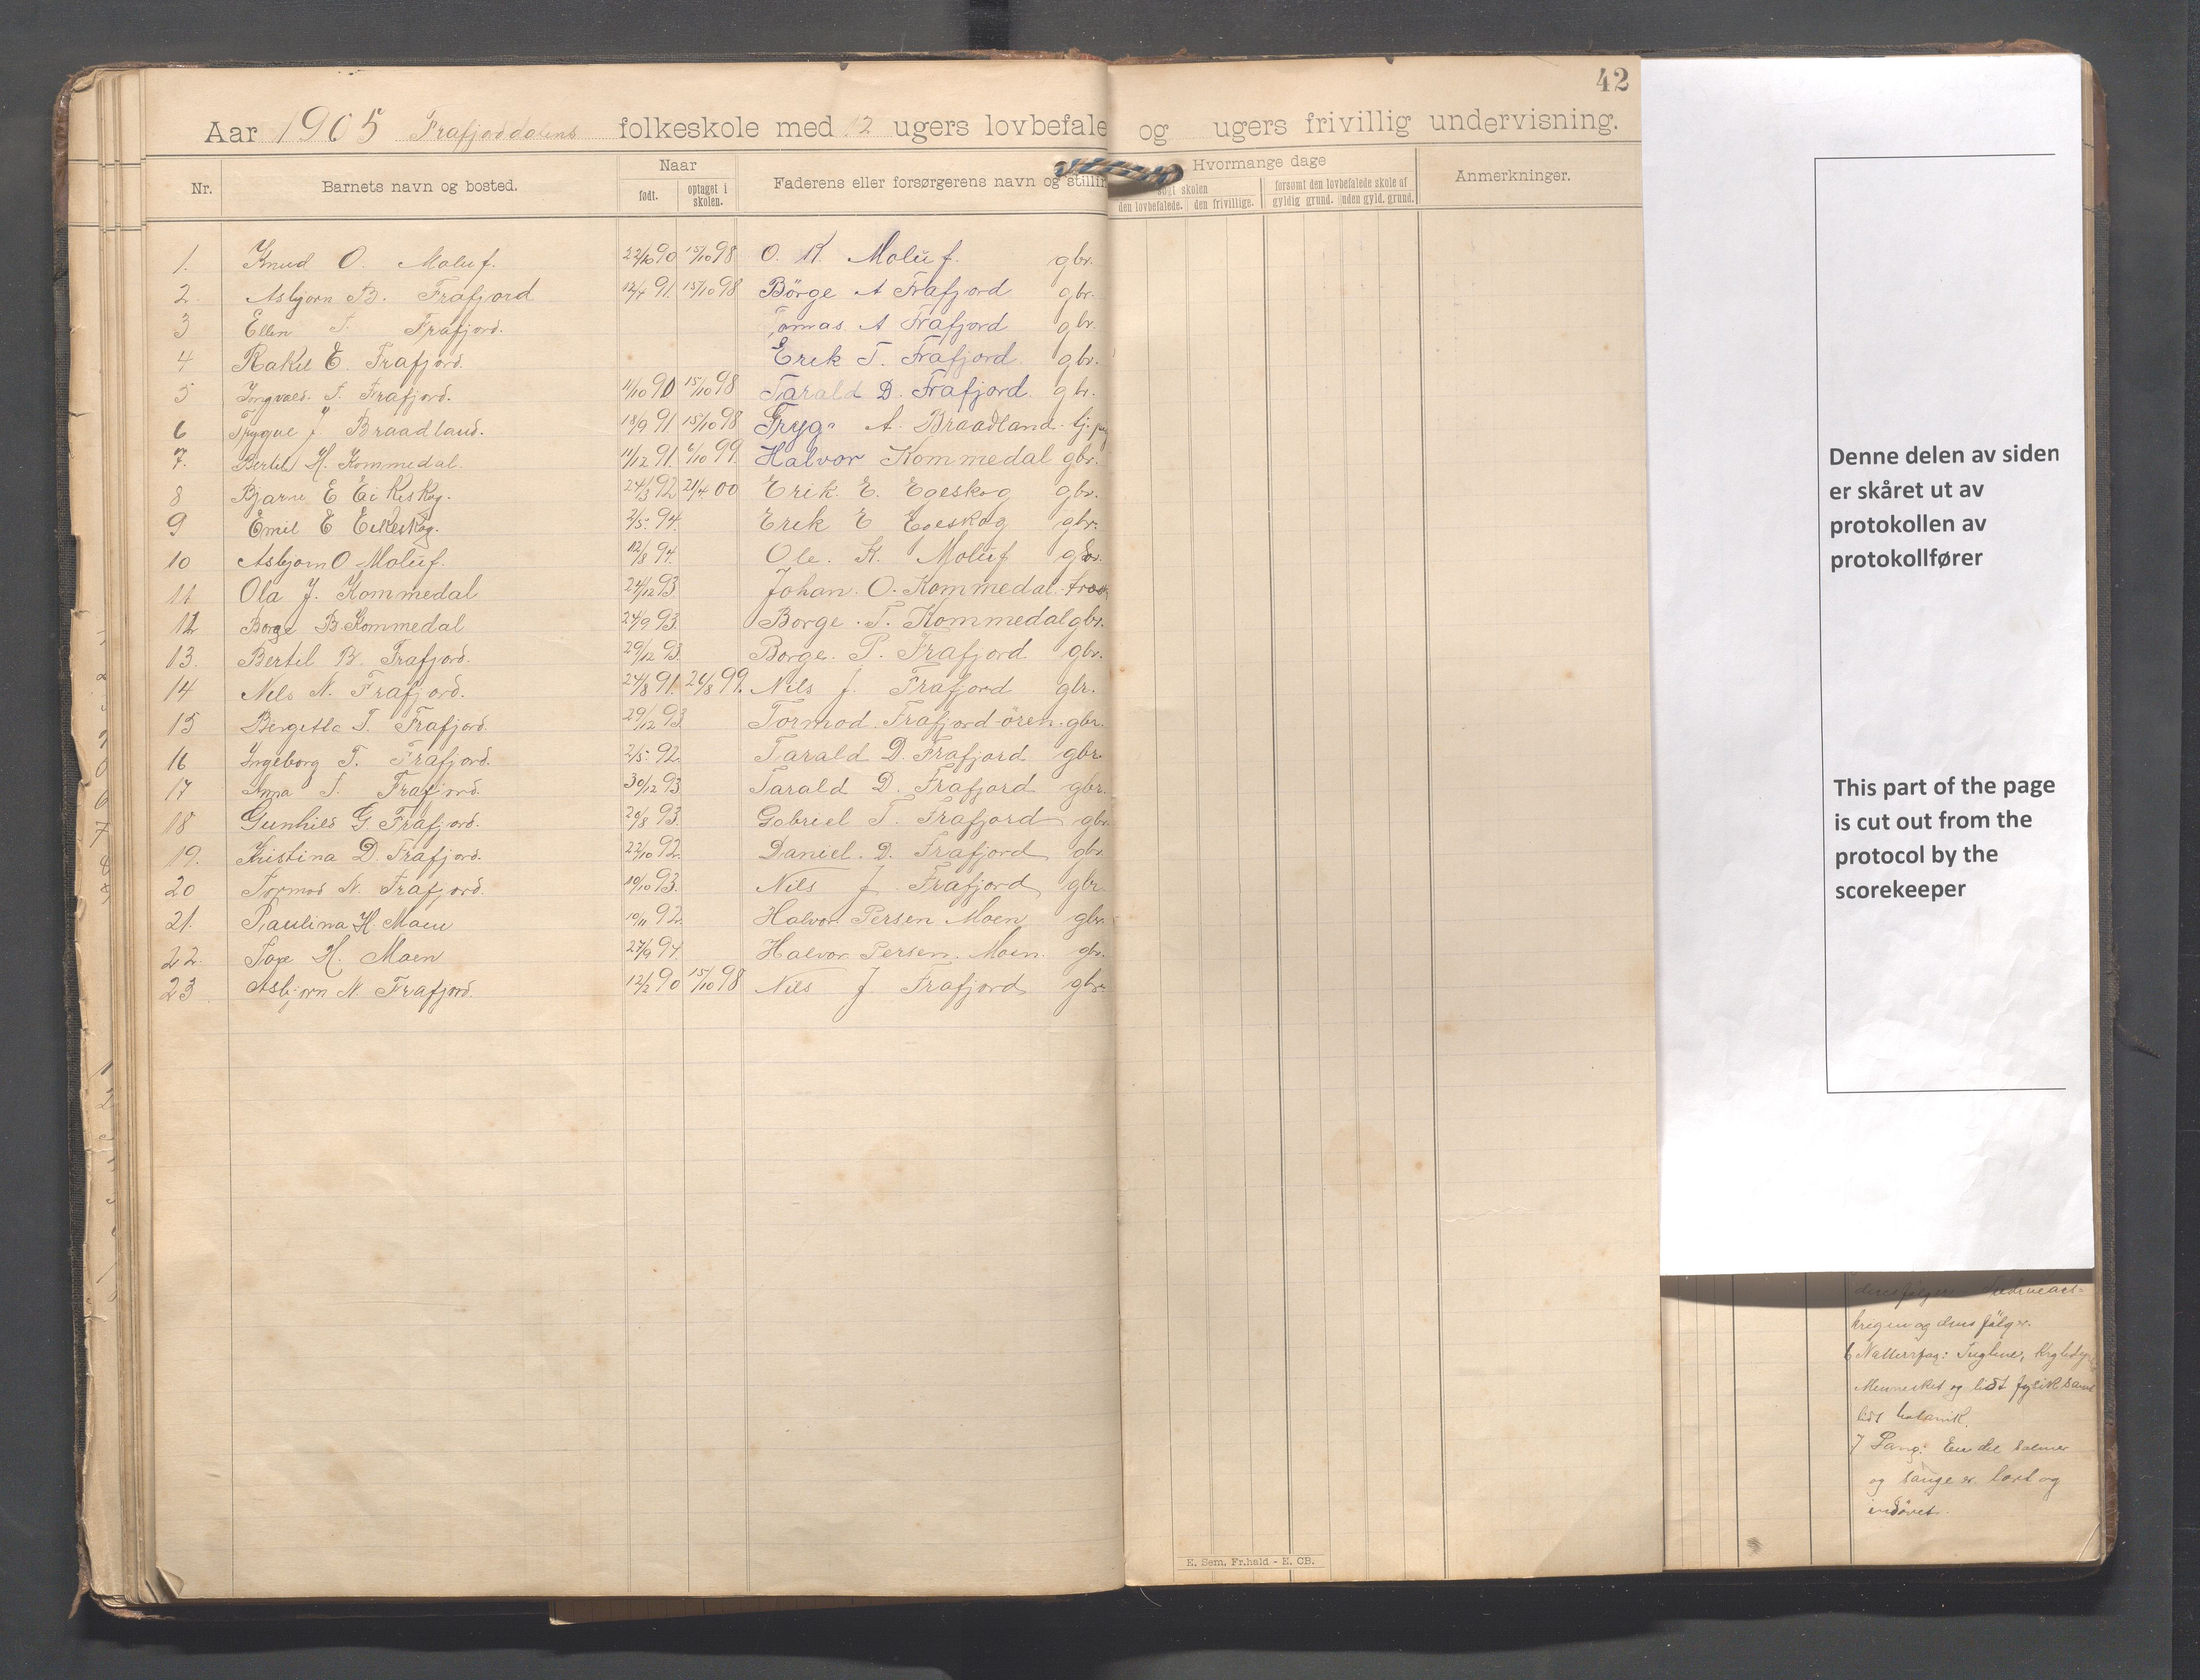 42
Aar 1905 Frafjorddalens folkeskole med 12 ugers lovbefale og ugers frivillig undervisning.
Nr. Barnets navn og bosted. Naar Faderens eller forsørgerens navn og stillin Hvormange dage Anmerkninger.
født. optaget i skolen. søgt skolen forsømt den lovbefalede skole af
den lovbefalede. den frivillige. gyldig grund. uden gyld. grund.
1. Knud O. Moluf. 22/10 90 15/10 98 O. K. Moluf. gbr.
2. Asbjørn B. Frafjord 12/4 91. 15/10 98 Børge A Frafjord gbr.
3 Ellen T. Frafjord. Tomas A Frafjord gbr.
4 Rakel E. Frafjord. Erik T. Frafjord gbr.
5 Ingvald. T. Frafjord. 11/10 90 15/10 98 Tarald D. Frafjord. gbr.
6 Trygve J. Braadland. 18/9 91 15/10 98 Tryg. A. Braadland
7. Bertel H. Kommedal. 11/12 91. 6/10 99. Halvor Kommedal gbr.
8 Bjarne E Eikeskog. 24/3 92 21/4 00 Erik. E. Egeskog gbr.
9 Emil E Eikeskog. 2/5. 94. Erik E Egeskog gbr.
10 Asbjørn O Moluf. 12/8 94. Ole. K. Moluf gbr.
11 Ola J. Kommedal 24/12 93. Johan. O. Kommedal.
12 Borge B Kommedal 24/9 93. Borge. T. Kommedal gbr.
13. Bertel B. Frafjord. 29/12 93. Borge. P. Frafjord gbr.
14 Nels N. Frafjord. 24/8 91. 26/8 99. Nils J. Frafjord gbr.
15 Bergetta T. Frafjord. 29/12 93 Tormod Frafjord-ören. gbr.
16 Ingeborg T. Frafjord. 2/5. 92. Tarald D. Frafjord gbr.
17 Anna T. Frafjord. 30/12 93 Tarald D. Frafjord gbr.
18 Gunhild G. Frafjord. 20/8 93. Gabriel T. Frafjord gbr.
19. Kristina D. Frafjord. 22/10 92. Daniel. D. Frafjord gbr.
20 Tormod N. Frafjord. 10/10 93. Nils J Frafjord gbr.
21. Paulina H Moen 10/11 92. Halvor Persen Moen gbr.
22. Tore H. Moen 27/9 94. Halvor Persen. Moen. gbr.
23 Asbjørn N. Frafjord. 12/2 90 15/10 98 Nils J Frafjord gbr.
E. Sem, Fr.hald - E. CB.
Denne delen av siden
er skåret ut av
protokollen av
protokollfører
This part of the page
is cut out from the
protocol by the
scorekeeper
krigen og dens følger.
6 Naturfag: Fuglene,
Mennesket og lidt fysik samt
lidt botanik.
7 Sang: En del salmer
og sange er lært og
indøvet.